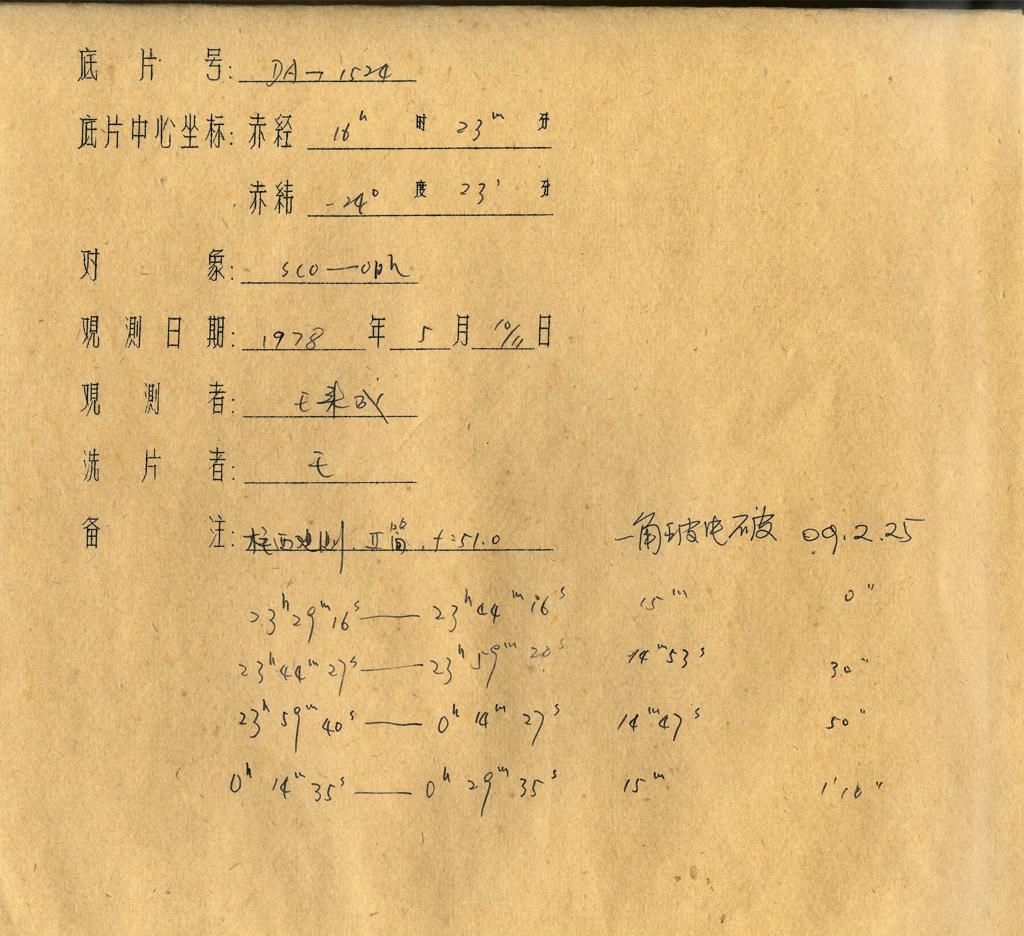 底片号: DA-1524
底片中心坐标: 赤经 16ʰ 时 23ᵐ 分
赤纬 -24° 度 23′ 分
对象: sco—oph
观测日期: 1978 年 5 月 10/11 日
观测者: 毛
洗片者: 毛
备注: 西观测. II筒. f=51.0 一角玻 破 09.2.25
23ʰ29ᵐ16ˢ — 23ʰ44ᵐ16ˢ 15ᵐ 0″
23ʰ44ᵐ27ˢ — 23ʰ59ᵐ20ˢ 14ᵐ53ˢ 30″
23ʰ59ᵐ40ˢ — 0ʰ14ᵐ27ˢ 14ᵐ47ˢ 50″
0ʰ14ᵐ35ˢ — 0ʰ29ᵐ35ˢ 15ᵐ 1′10″